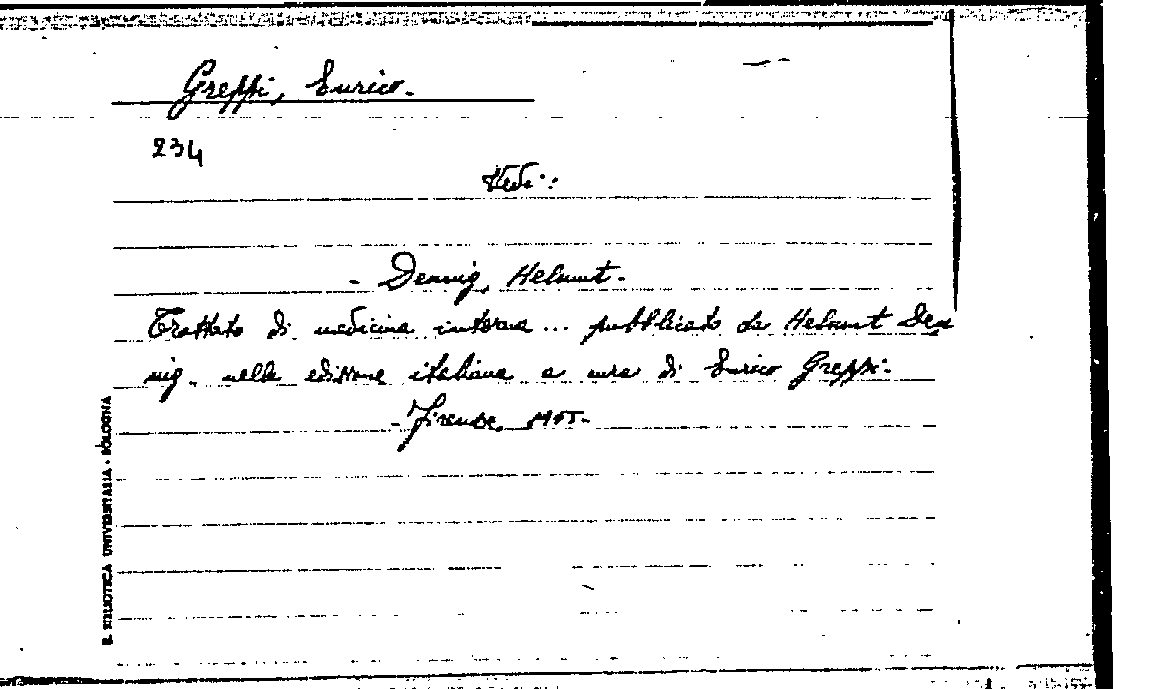 Greppi, Enrico.
234
Vedi:
- Dennig, Helmut.
Trattato di medicina interna ... pubblicato da Helmut Den
nig. nella edizione italiana a cura di Enrico Greppi.
- Firenze,
R. BIBLIOTECA UNIVERSITARIA - BOLOGNA